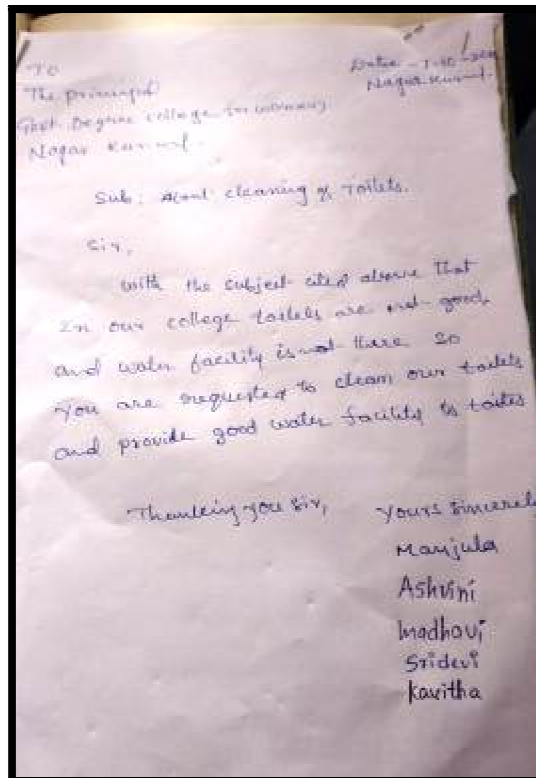 To
The principal
Govt Degree college for women
Nagar Kurnool.
Date - 7-10-
Nagar Kurnool.
Sub: About cleaning of Toilets.
Sir,
With the subject cited above that
In our college toilets are not good,
and water facility is not there so
You are requested to clean our toilets
and provide good water facility to
Thanking you Sir,
Yours Sincerely
Manjula
Ashvini
Madhavi
Sridevi
Kavitha